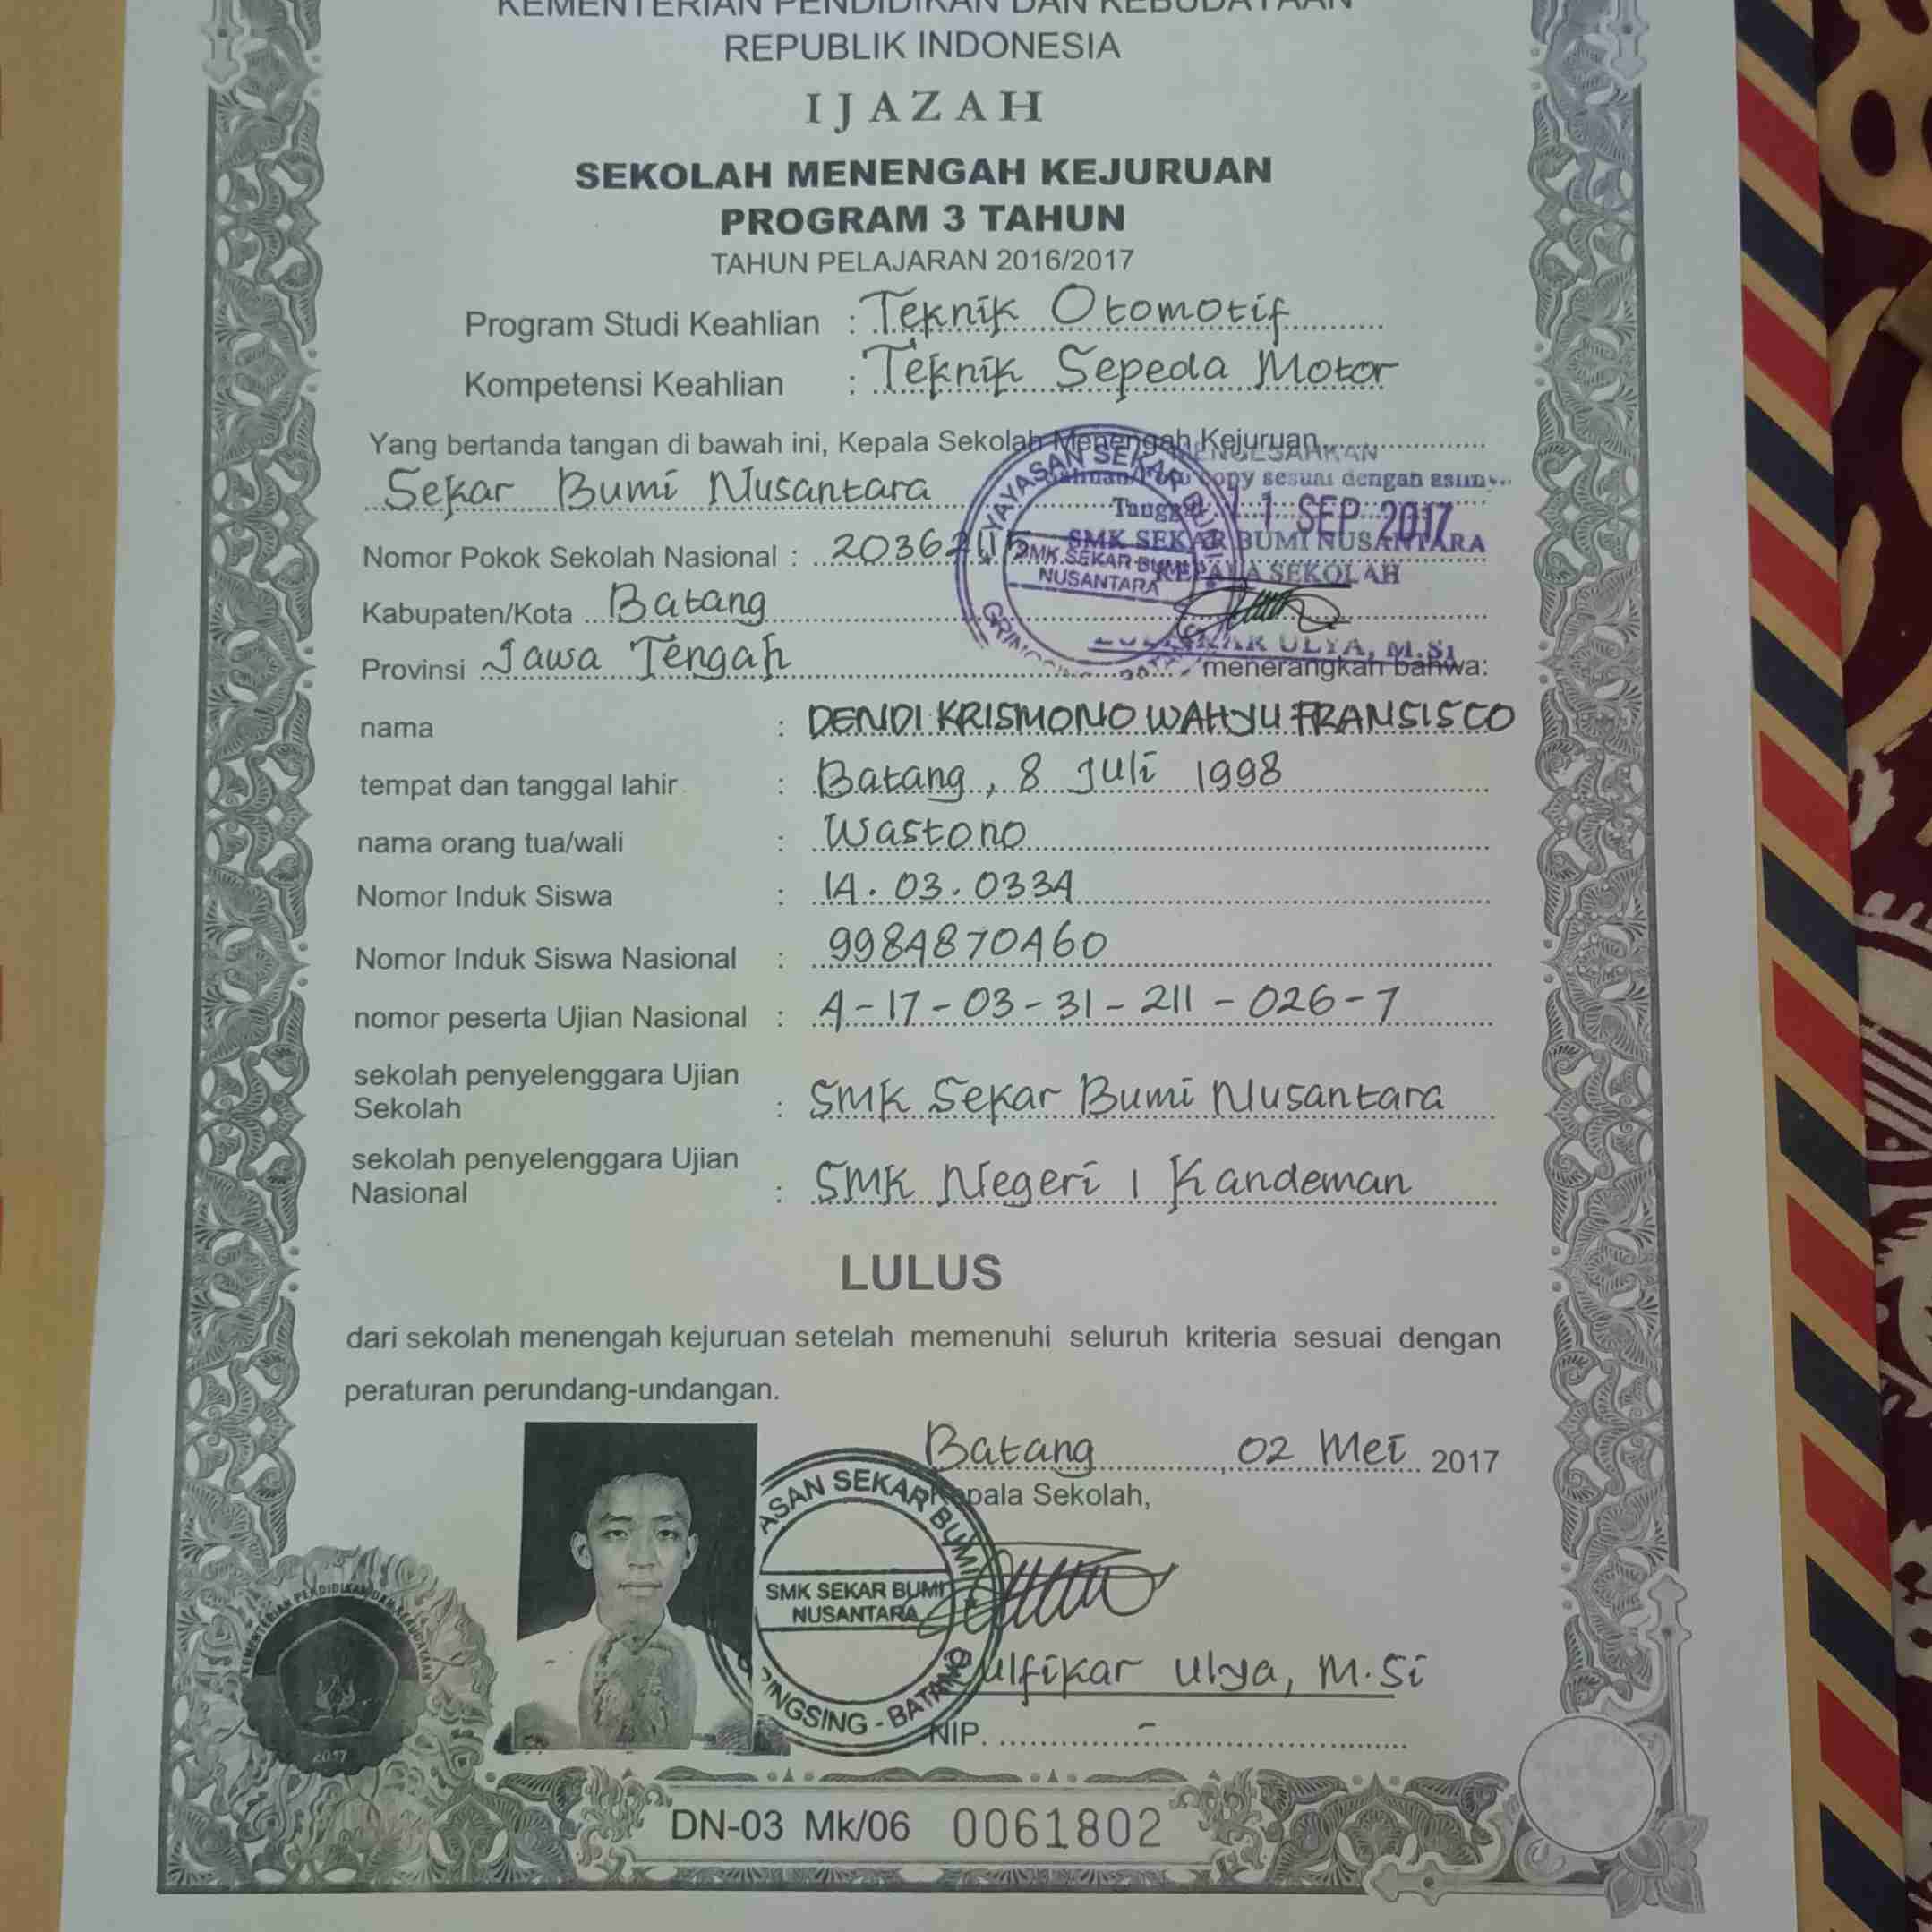 KEMENTERIAN PENDIDIKAN DAN KEBUDAYAAN
REPUBLIK INDONESIA
IJAZAH
SEKOLAH MENENGAH KEJURUAN
PROGRAM 3 TAHUN
TAHUN PELAJARAN 2016/2017
Program Studi Keahlian : Teknik Otomotif
Kompetensi Keahlian : Teknik Sepeda Motor
Yang bertanda tangan di bawah ini, Kepala Sekolah Menengah Kejuruan
Sekar Bumi Nusantara
MENGESAHKAN
copy sesuai dengan
Tanggal 11 SEP 2017
SMK SEKAR BUMI NUSANTARA
KEPALA SEKOLAH
ULYA, M.Si
YAYASAN SEKAR BUMI
SMK SEKAR BUMI
NUSANTARA
Nomor Pokok Sekolah Nasional :
Kabupaten/Kota Batang
Provinsi Jawa Tengah menerangkan bahwa:
nama : DENDI KRISMONO WAHYU FRANSISCO
tempat dan tanggal lahir : Batang, 8 Juli 1998
nama orang tua/wali : Wastono
Nomor Induk Siswa : 14.03.0334
Nomor Induk Siswa Nasional : 9984870460
nomor peserta Ujian Nasional : 4-17-03-31-211-026-7
sekolah penyelenggara Ujian
Sekolah : SMK Sekar Bumi Nusantara
sekolah penyelenggara Ujian
Nasional : SMK Negeri 1 Kandeman
LULUS
dari sekolah menengah kejuruan setelah memenuhi seluruh kriteria sesuai dengan
peraturan perundang-undangan.
Batang, 02 Mei 2017
Kepala Sekolah,
YASAN SEKAR BUMI
SMK SEKAR BUMI
NUSANTARA
GRINGSING - BATANG
Zulfikar Ulya, M.Si
NIP. -
KEMENTERIAN PENDIDIKAN DAN KEBUDAYAAN
2017
DN-03 Mk/06 0061802